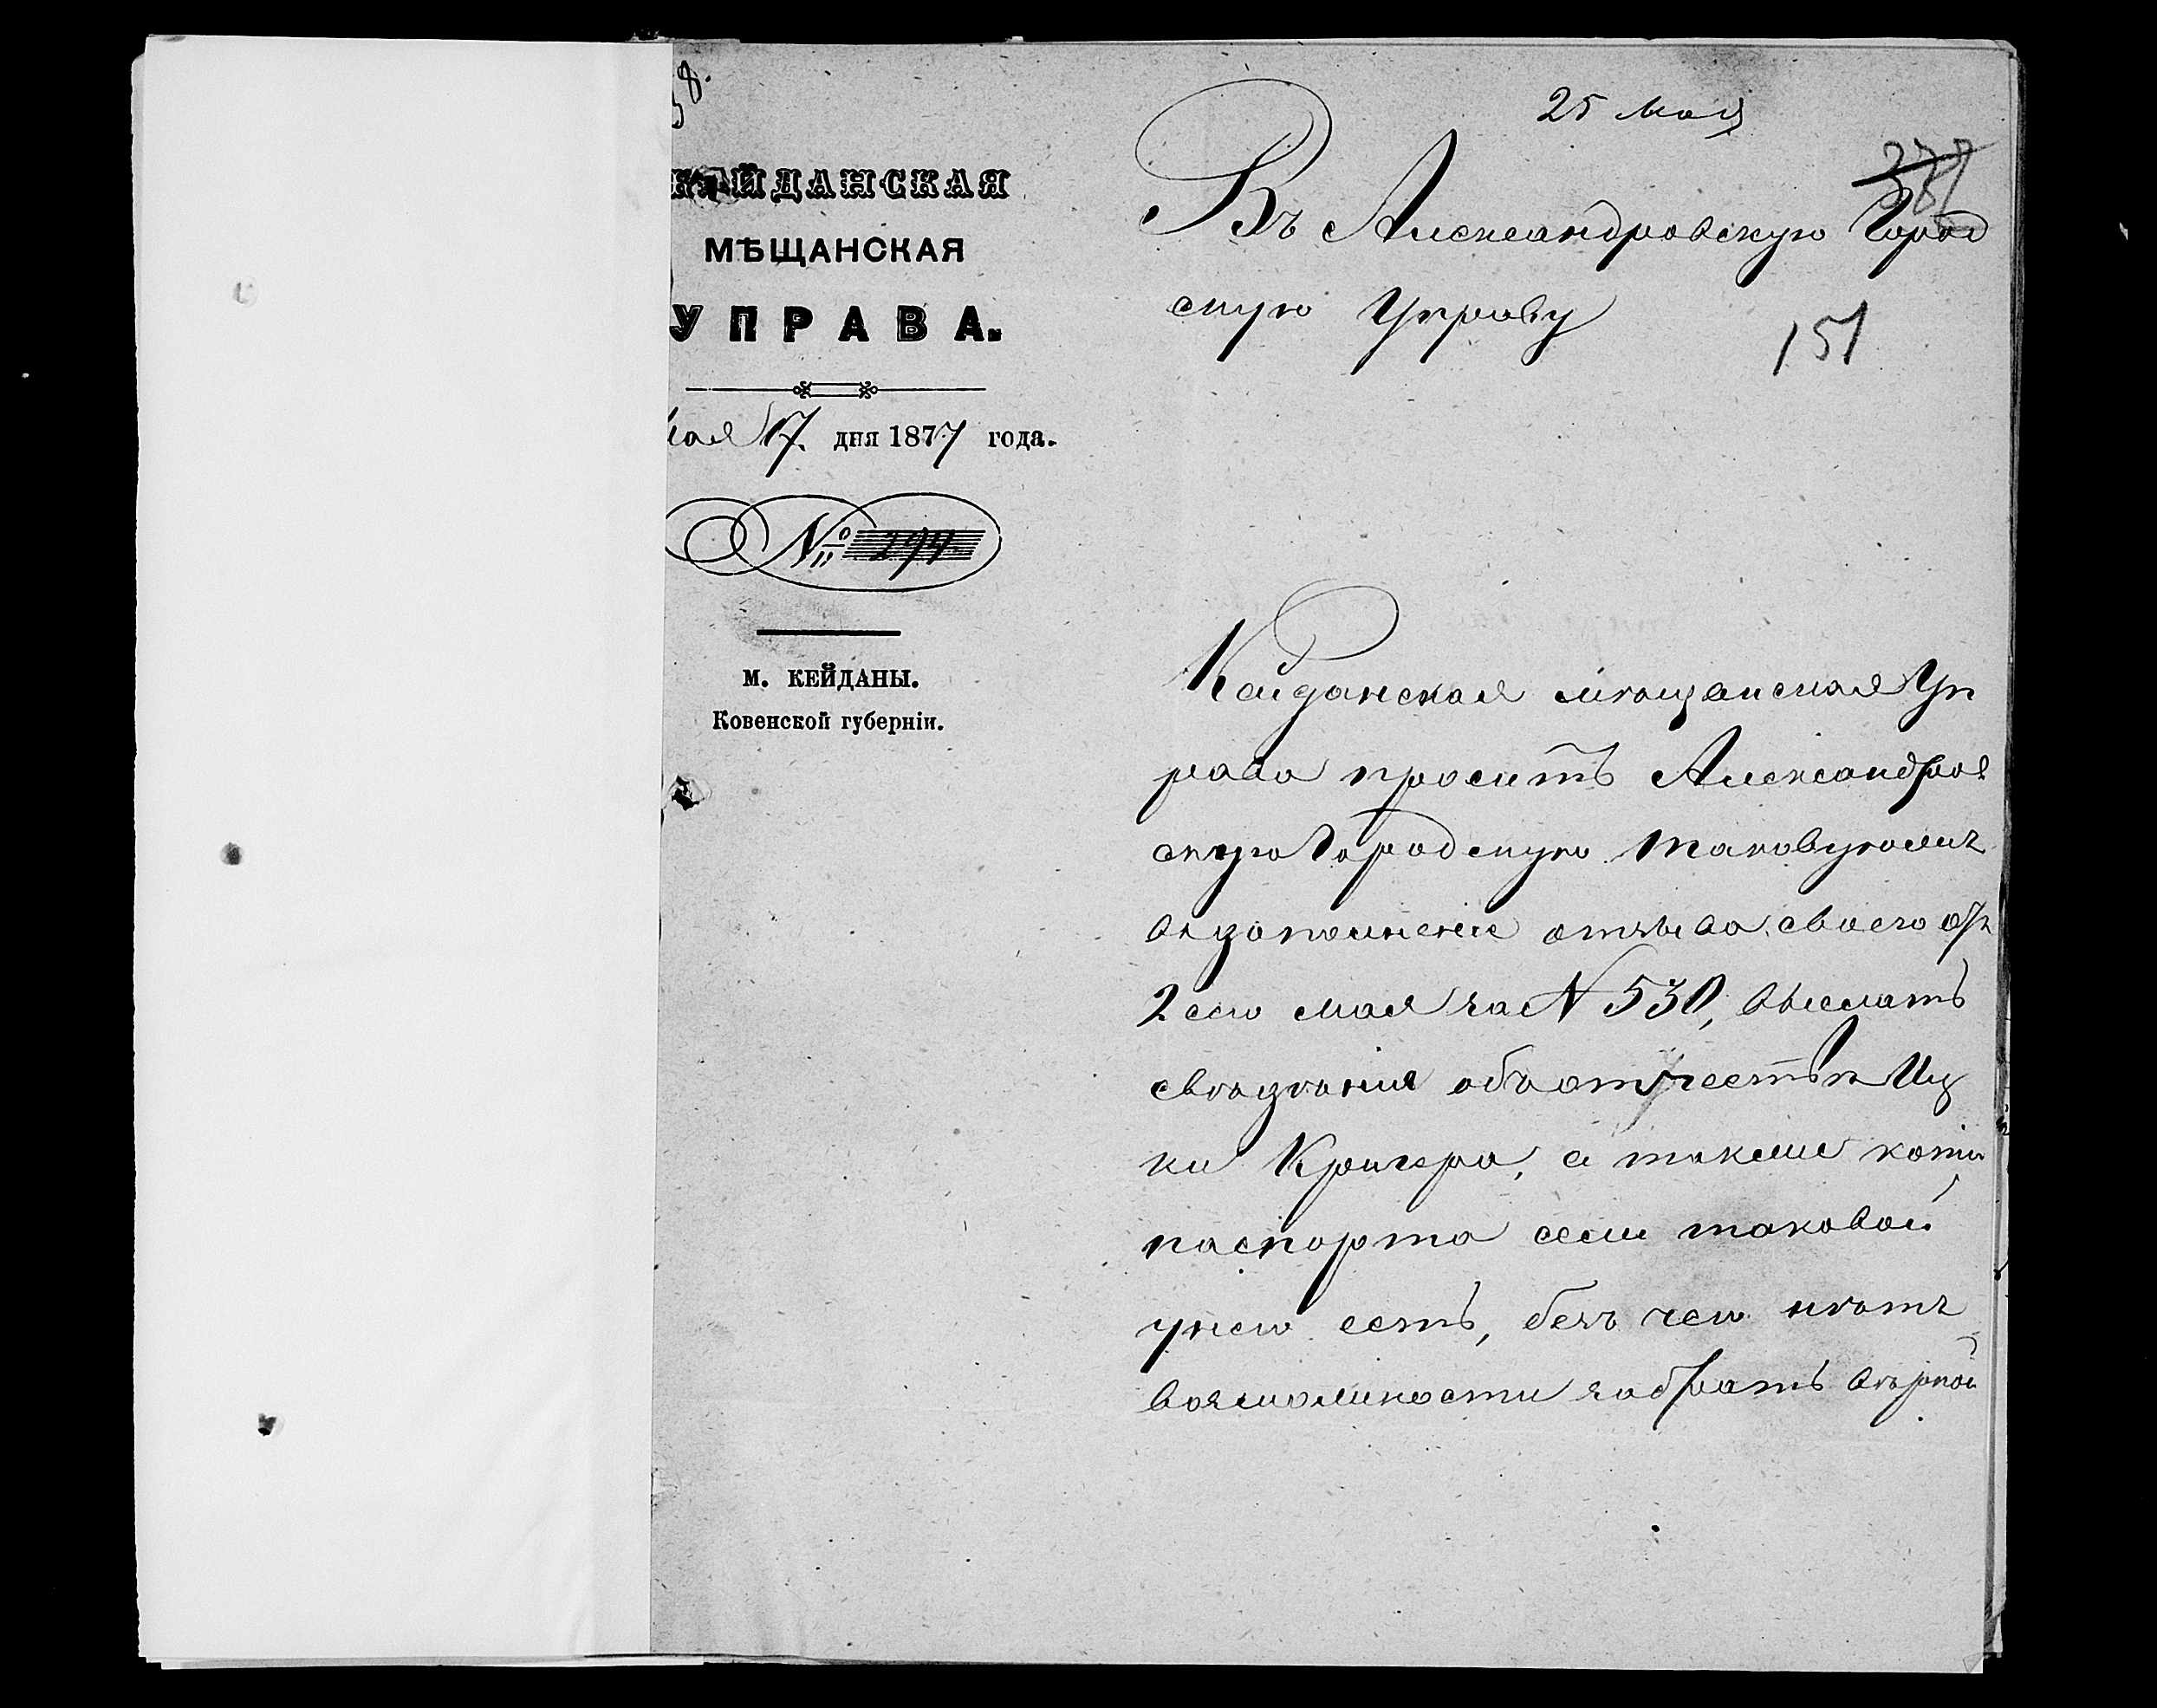 8.
КЕЙДАНСКАЯ
МѢЩАНСКАЯ
УПРАВА.
мая 17 дня 1877 года.
№ 294.
м. КЕЙДАНЫ.
Ковенской губерніи.
25 мая
Въ Александровскую Город
скую Управу
151
Кейданская мѣщанская Уп
рава проситъ Александров
скую Городскую таковую
въ дополненіе отзыва своего отъ
2 сего мая за N 530, выслать
свѣдѣнія объ отчествѣ Иц
ки Кригера, а также копію
паспорта если таковой
унего есть, безъ чего нѣтъ
возможности забрать вѣрной